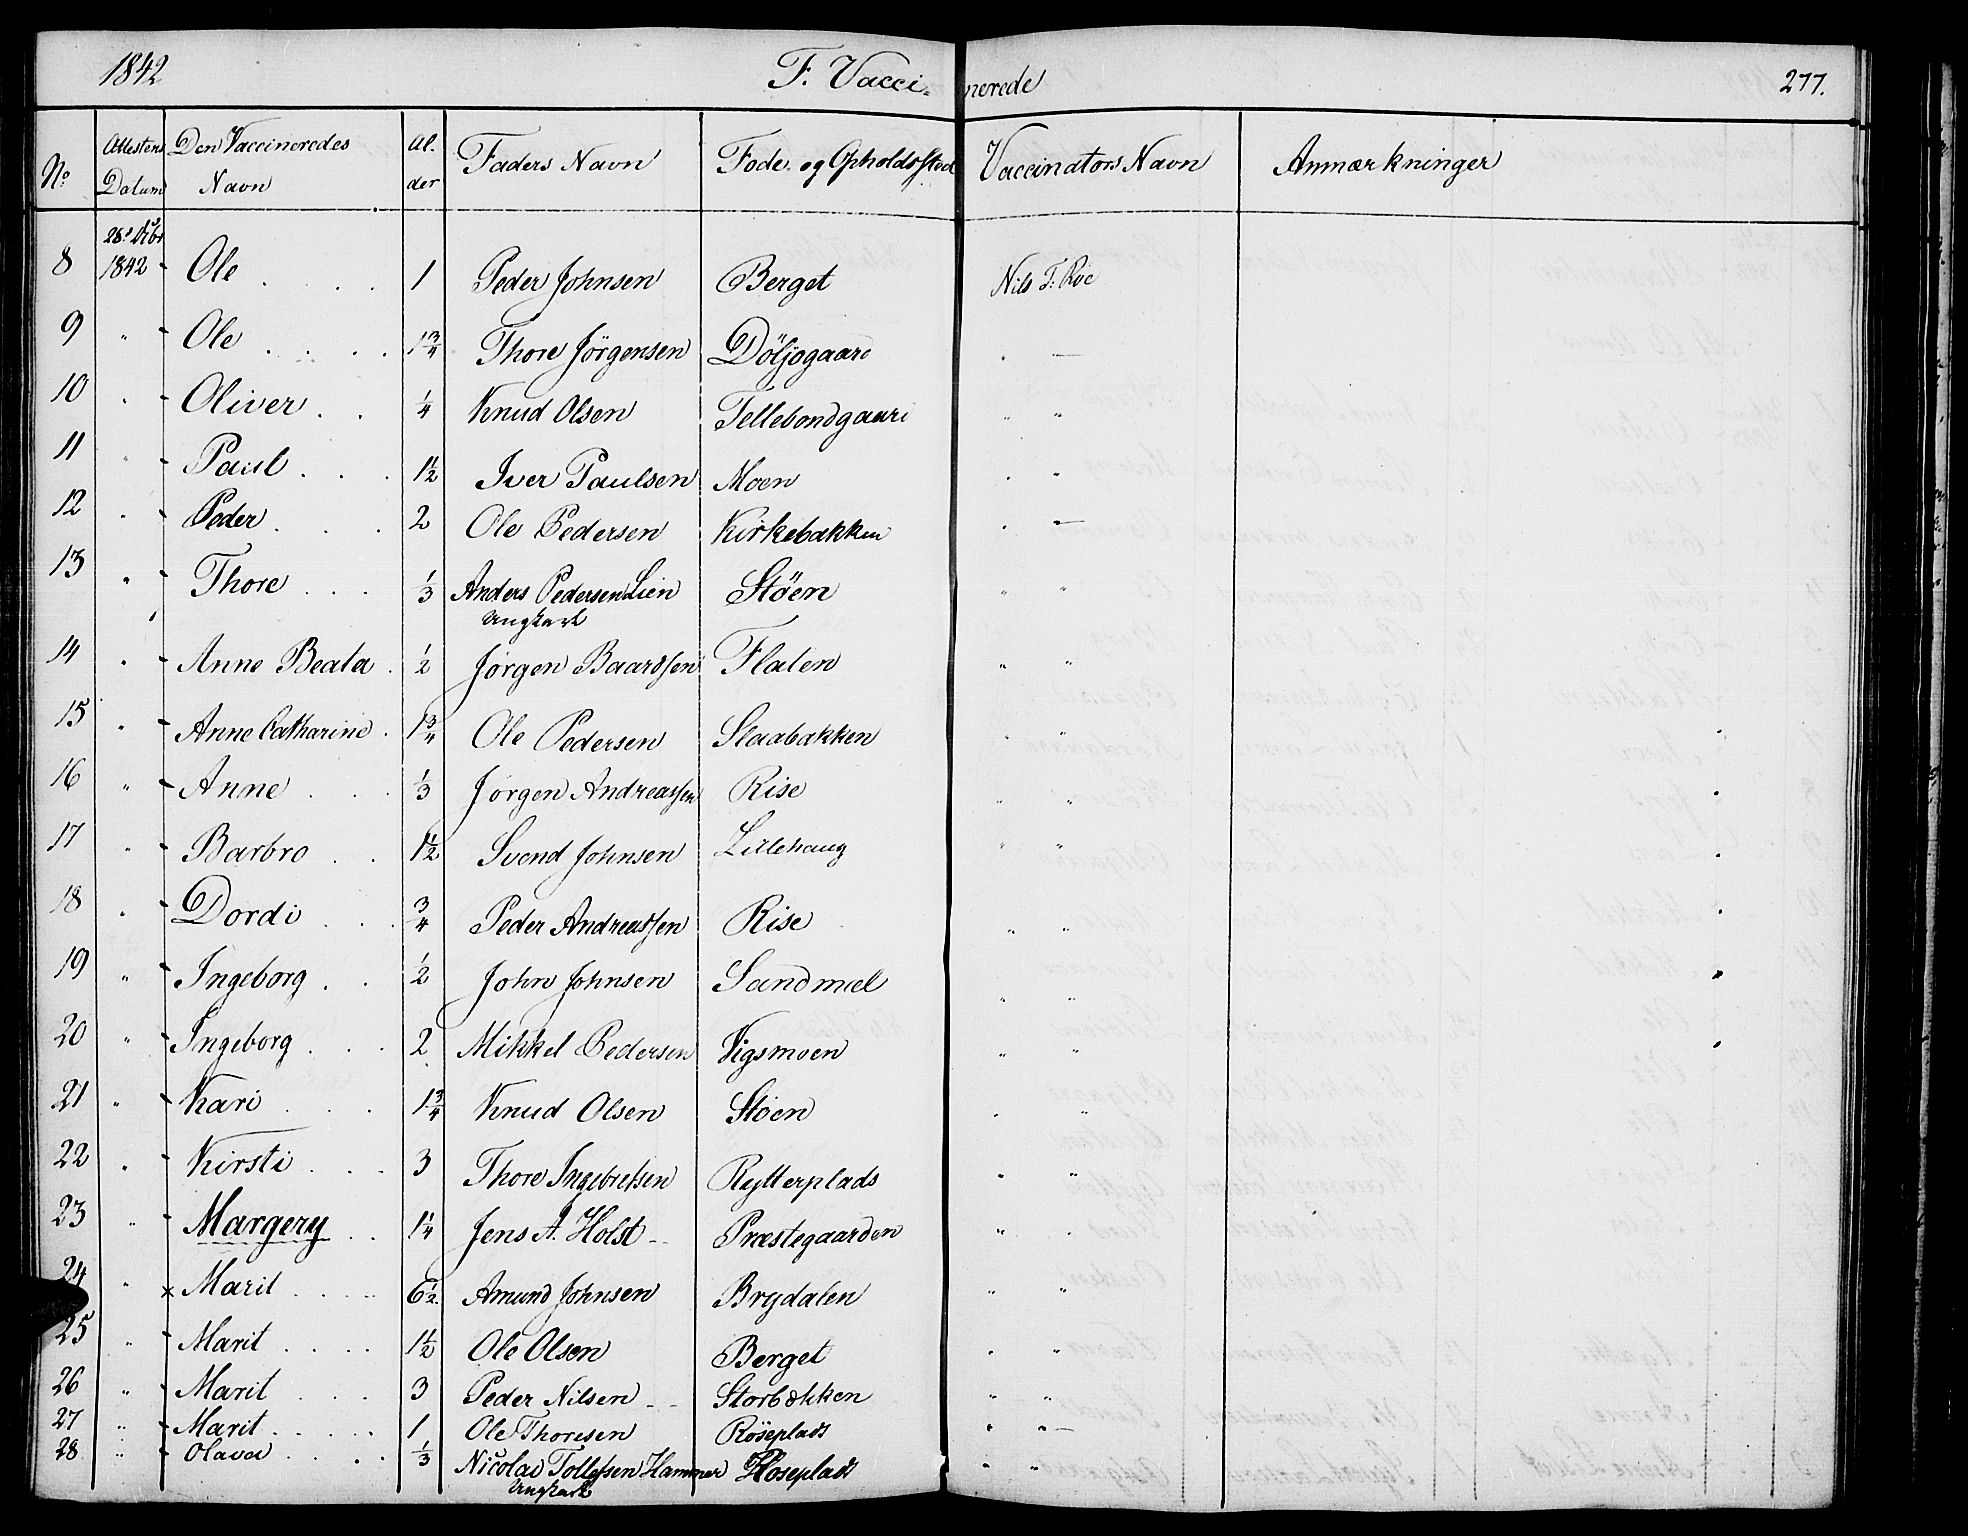 1842 F. Vaccinerede 277.
No. Attestens Datum Den Vaccineredes Navn Alder Faders Navn Føde- og Opholdssted Vaccinators Navn Anmærkninger
8 28de 1842 - Ole 1 Peder Johnsen Berget Nils T. Røe
9 " - Ole 1 3/4 Thore Jörgensen Döljogaard " —
10 " - Oliver 1/4 Knud Olsen Tellebondgaard " "
11 " - Paul 1 1/2 Iver Paulsen Moen " "
12 " - Peder 2 Ole Pedersen Kirkebakken " —
13 " Thore 1/3 Anders Pedersen Lien Stöen " "
Ungkarl
14 " - Anne Beata 1/2 Jørgen Baardsen Flaten " "
15 " - Anne Catharine 1 3/4 Ole Pedersen Slaabakken " "
16 " - Anne 1/3 Jørgen Andreassen Rise " "
17 " - Barbro 1 1/2 Svend Johnsen Lillehaug " "
18 " - Dordi 3/4 Peder Andreassen Rise " "
19 " - Ingeborg 1/2 John Johnsen Sandmæl " "
20 " - Ingeborg 2 Mikkel Pedersen Vigsmoen " "
21 " - Kari 1 3/4 Knud Olsen Stöen " "
22 " - Kirsti 3 Thore Ingebretsen Rytterplads " "
23 " - Margery 1 1/4 Jens A. Holst Præstegaarden " "
24 " x Marit 6 1/2 Amund Johnsen Brydalen " "
25 " - Marit 1 1/2 Ole Olsen Berget " "
26 " - Marit 3 Peder Nilsen Storbækken " "
27 " - Marit 1 Ole Thoresen Röseplads " "
28 " - Olava 1/3 Nicolai Tollefsen Hammer " "
Ungkarl